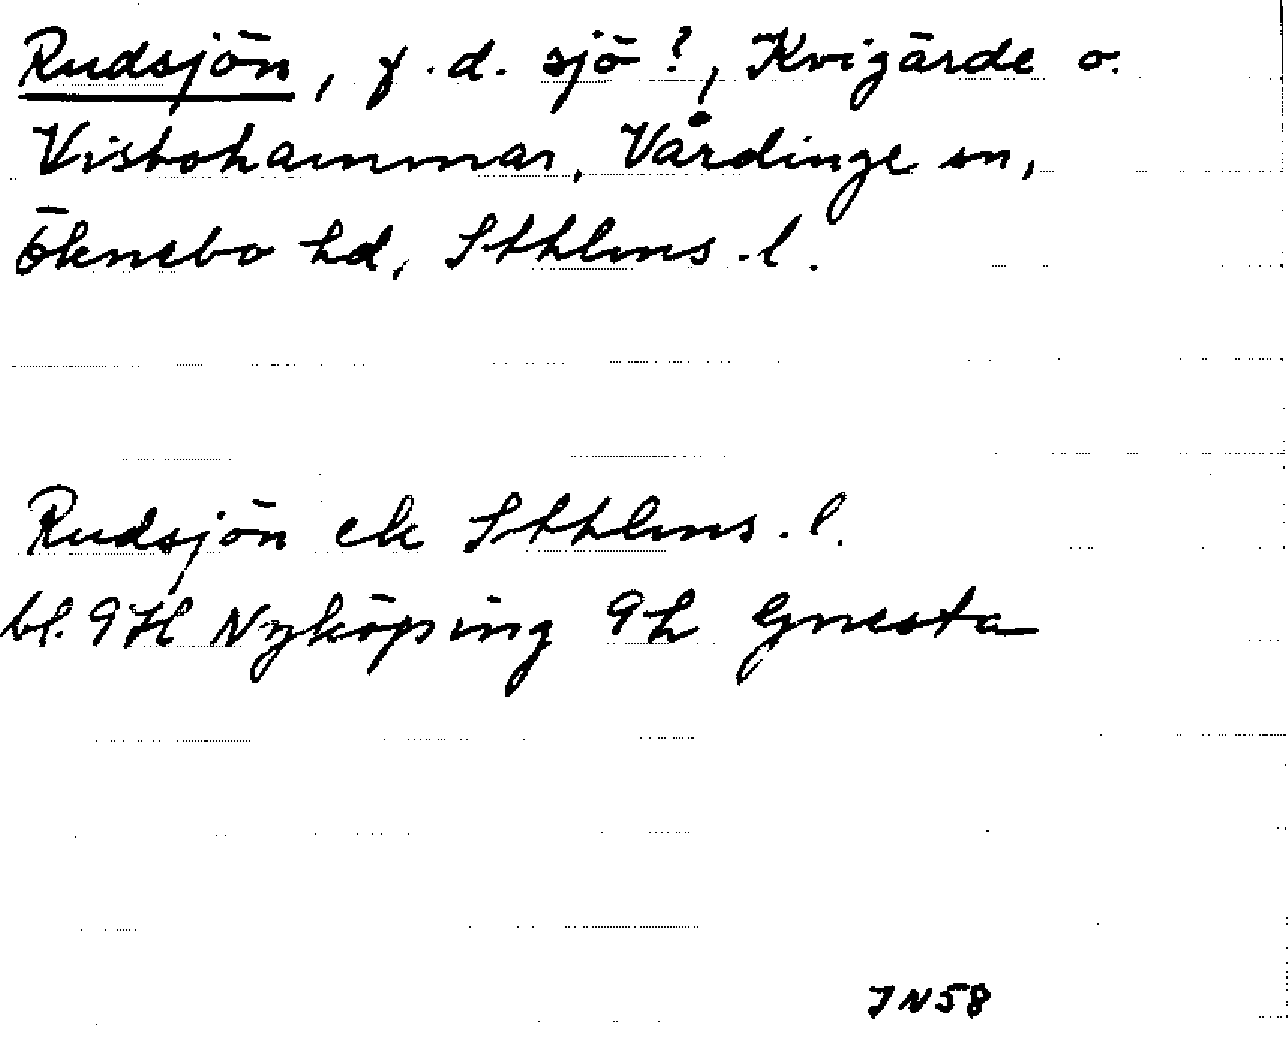 Rudsjön, f.d. sjö?, Kvigärde o.
Visbohammar, Vårdinge sn,
Öknebo hd, Sthlms.l.
Rudsjön ek Sthlms.l.
bl. 9H Nyköping 9h Gnesta
JN58